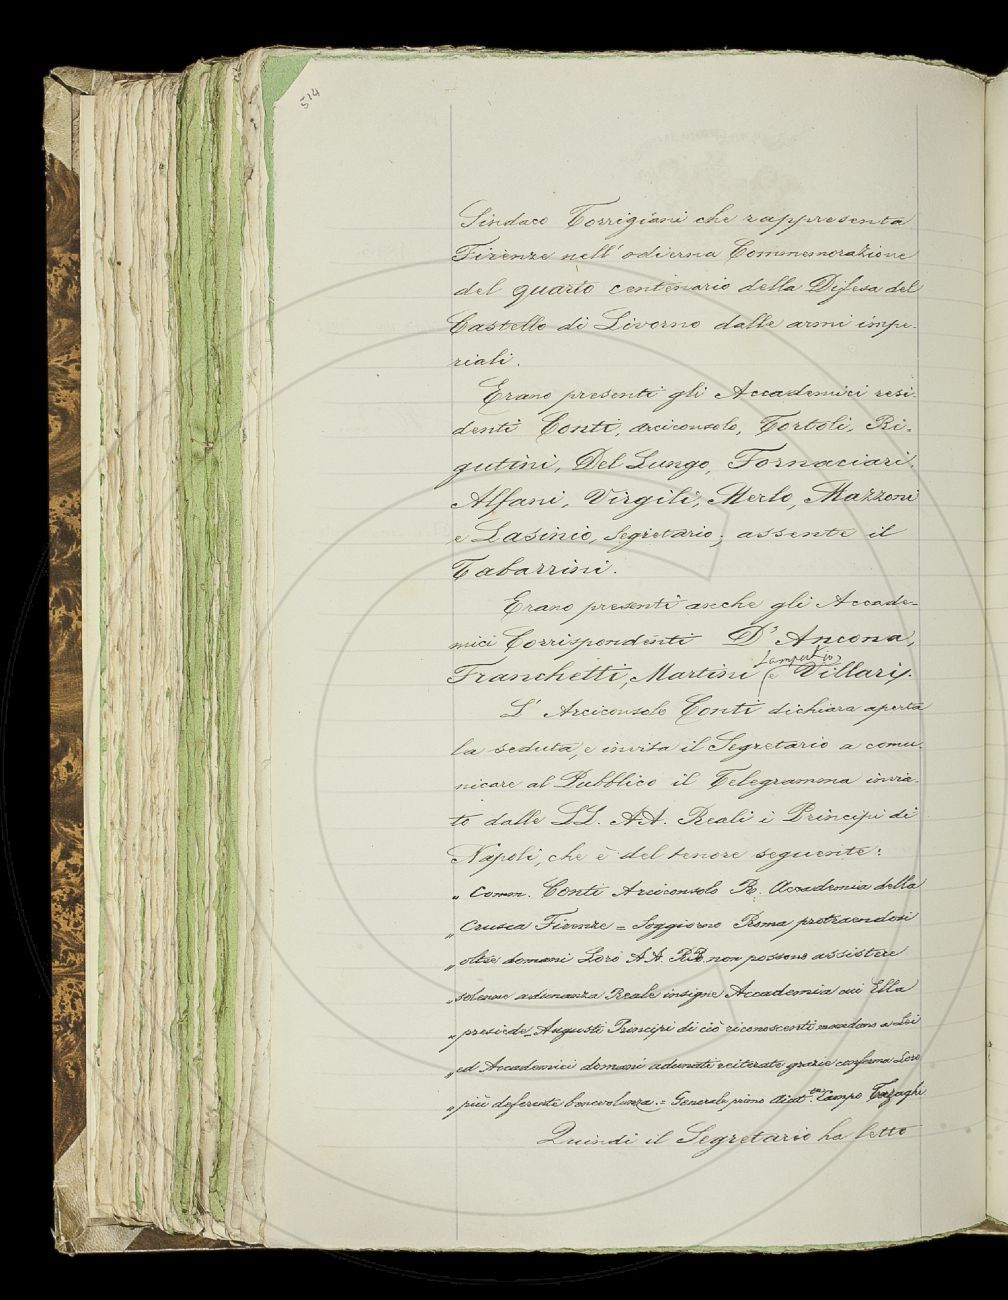 514
Sindaco Torrigiani che rappresenta
Firenze nell' odierna Commemorazione
del quarto centenario della Difesa del
Castello di Livorno dalle armi impe-
riali.
Erano presenti gli Accademici resi-
denti Conti, arciconsolo, Tortoli, Ri-
gutini, Del Lungo, Fornaciari,
Alfani, Virgili, Merlo, Mazzoni
e Lasinio, Segretario; assente il
Tabarrini.
Erano presenti anche gli Accade-
mici Corrispondenti D'Ancona,
Franchetti, Martini e Villari.
L' Arciconsolo Conti dichiara aperta
la seduta, e invita il Segretario a comu-
nicare al Pubblico il Telegramma invia-
to dalle LL. AA. Reali i Principi di
Napoli, che è del tenore seguente:
„ Comm. Conti Arciconsolo R. Accademia della
„ Crusca Firenze = Soggiorno Roma protraendosi
„ oltre domani Loro AA. RR. non possono assistere
„ solenne adunanza Reale insigne Accademia cui Ella
„ presiede_ Augusti Principi di ciò riconoscenti mandano a Lei
„ ed Accademici domani adunati reiterate grazie conferma Loro
„ più deferente benevolenza. = Generale primo Aiut.te Campo Terzaghi
Quindi il Segretario ha letto